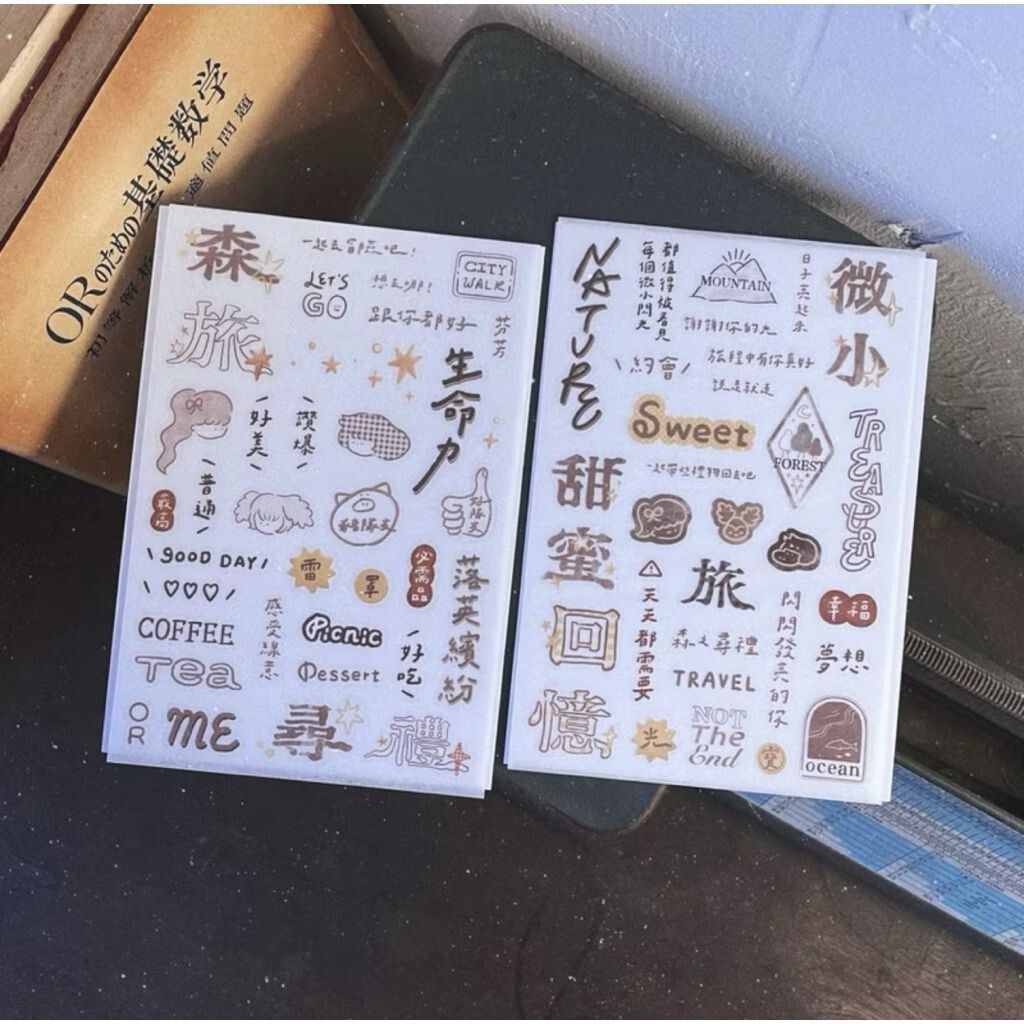 ORのための基礎数学
初等解析
適値問題
森
一起去冒險吧!
CITY
WALK
LET'S
GO
想去哪?
跟你都好
芬芳
旅
生命力
好美
讚爆
普通
最高
GOOD DAY
雷
罩
必需品
落英繽紛
COFFEE
感受線意
Picnic
好吃
Tea
Dessert
OR
ME
尋
禮
NATURE
每個微小閃光
都值得被看見
MOUNTAIN
日子亮起來
微小
謝謝你的光
約會
旅程中有你真好
說走就走
Sweet
FOREST
TREASURE
一起帶些禮物回去吧
甜蜜回憶
旅
天天都需要
幸福
閃閃發亮的你
森之尋禮
夢想
TRAVEL
光
NOT
The
End
寶
ocean